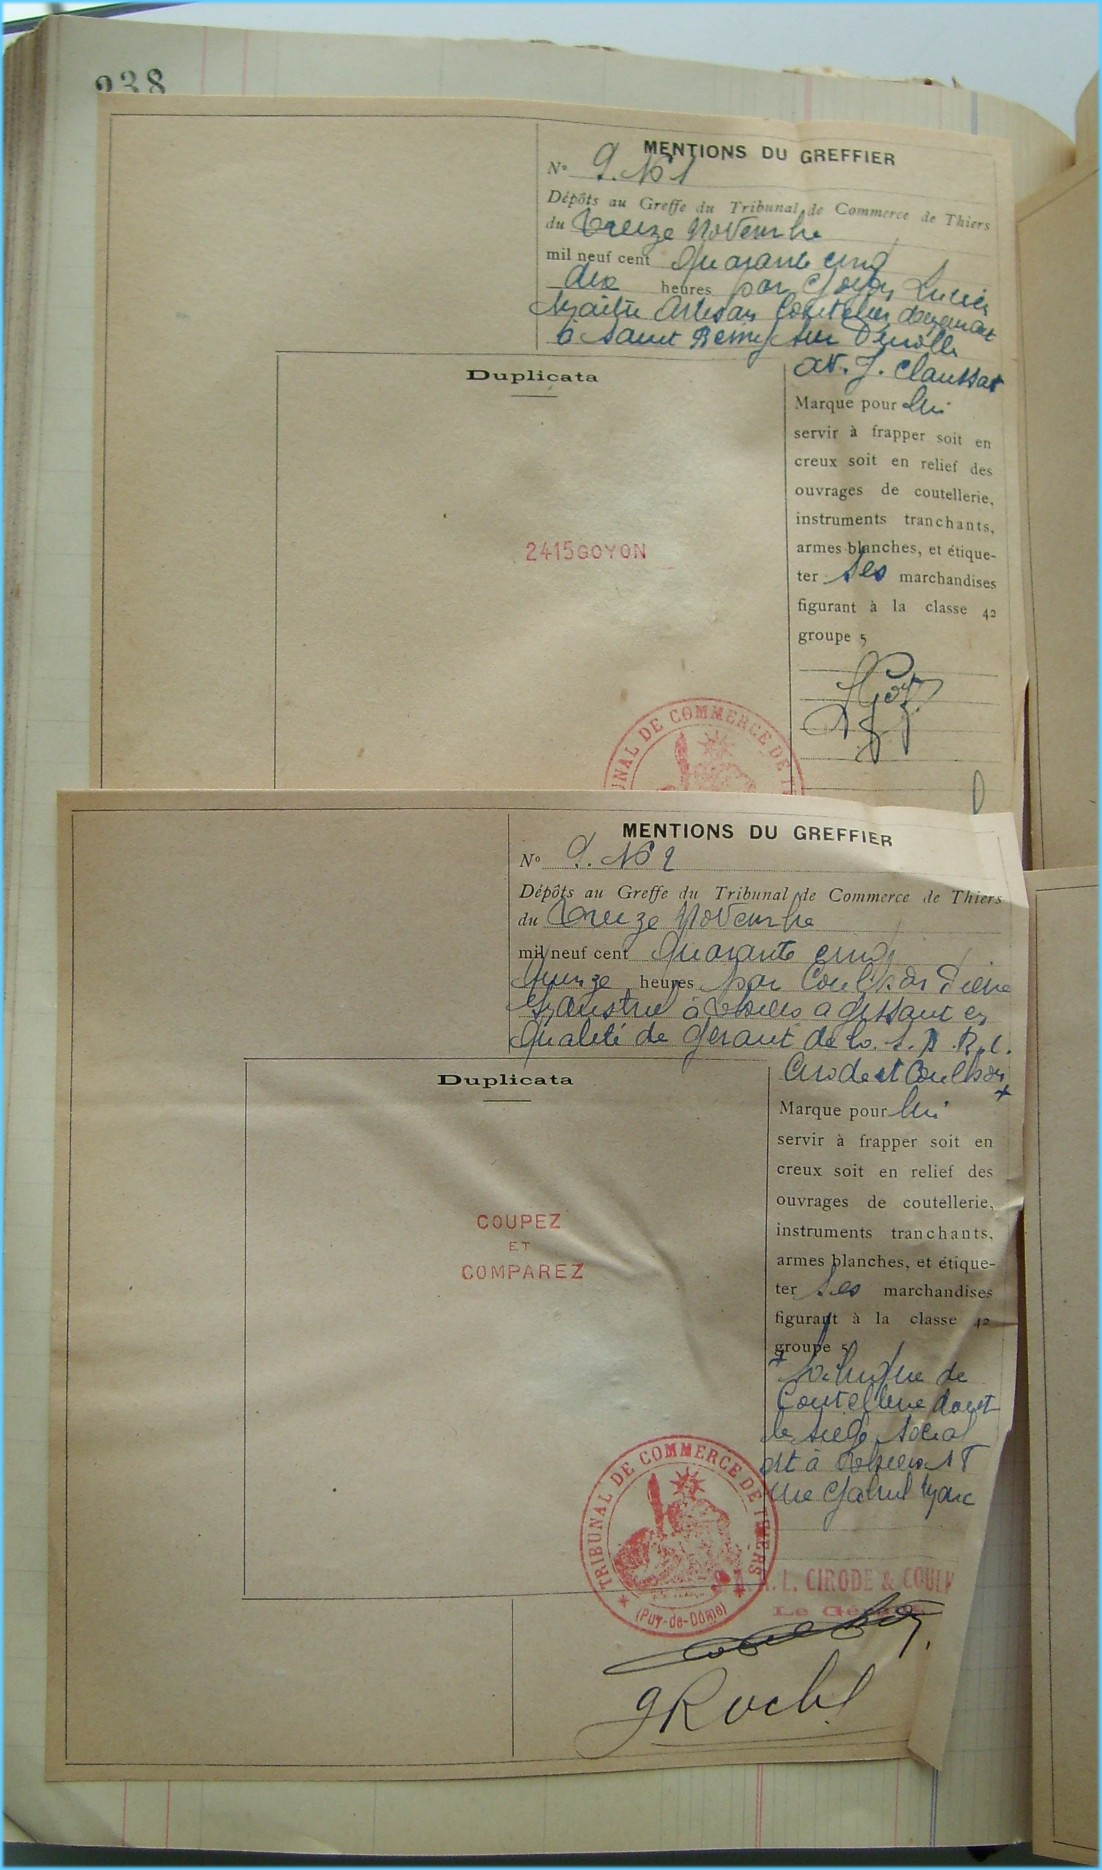 238
MENTIONS DU GREFFIER
N° 9. N° 1
Dépôts au Greffe du Tribunal de Commerce de Thiers
du Treize Novembre
mil neuf cent Quarante cinq
dix heures par Goyon Lucien
Maître Artisan Coutelier demeurant
à Saint Remy sur Durolle
av. J. Claussat
Duplicata
Marque pour lui
servir à frapper soit en
creux soit en relief des
ouvrages de coutellerie,
instruments tranchants,
armes blanches, et étique-
ter ses marchandises
figurant à la classe 42
groupe 5
2415GOYON
TRIBUNAL DE COMMERCE DE
MENTIONS DU GREFFIER
N° 9. N° 2
Dépôts au Greffe du Tribunal de Commerce de Thiers
du Treize Novembre
mil neuf cent Quarante cinq
heures par Pierre
Industriel à Thiers agissant en
qualité de gérant de la S. A. R. L.
Cirode et
Duplicata
Marque pour lui
servir à frapper soit en
creux soit en relief des
ouvrages de coutellerie,
instruments tranchants,
armes blanches, et étique-
ter ses marchandises
figurant à la classe 42
groupe 5
+ Fabrique de
Coutellerie dont
le siège social
est à Thiers
rue Gabriel Marc
COUPEZ
ET
COMPAREZ
TRIBUNAL DE COMMERCE DE THIERS
(Puy-de-Dôme)
R. L. CIRODE & COULK
Le Gérant